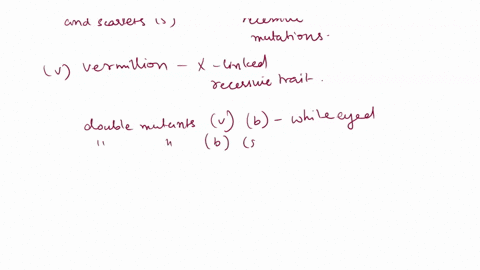 and scarlets (s)
mutations.
(v) vermillion - X-linked
recessive trait.
double mutants (v) (b) - while eyed
" " (b) (s